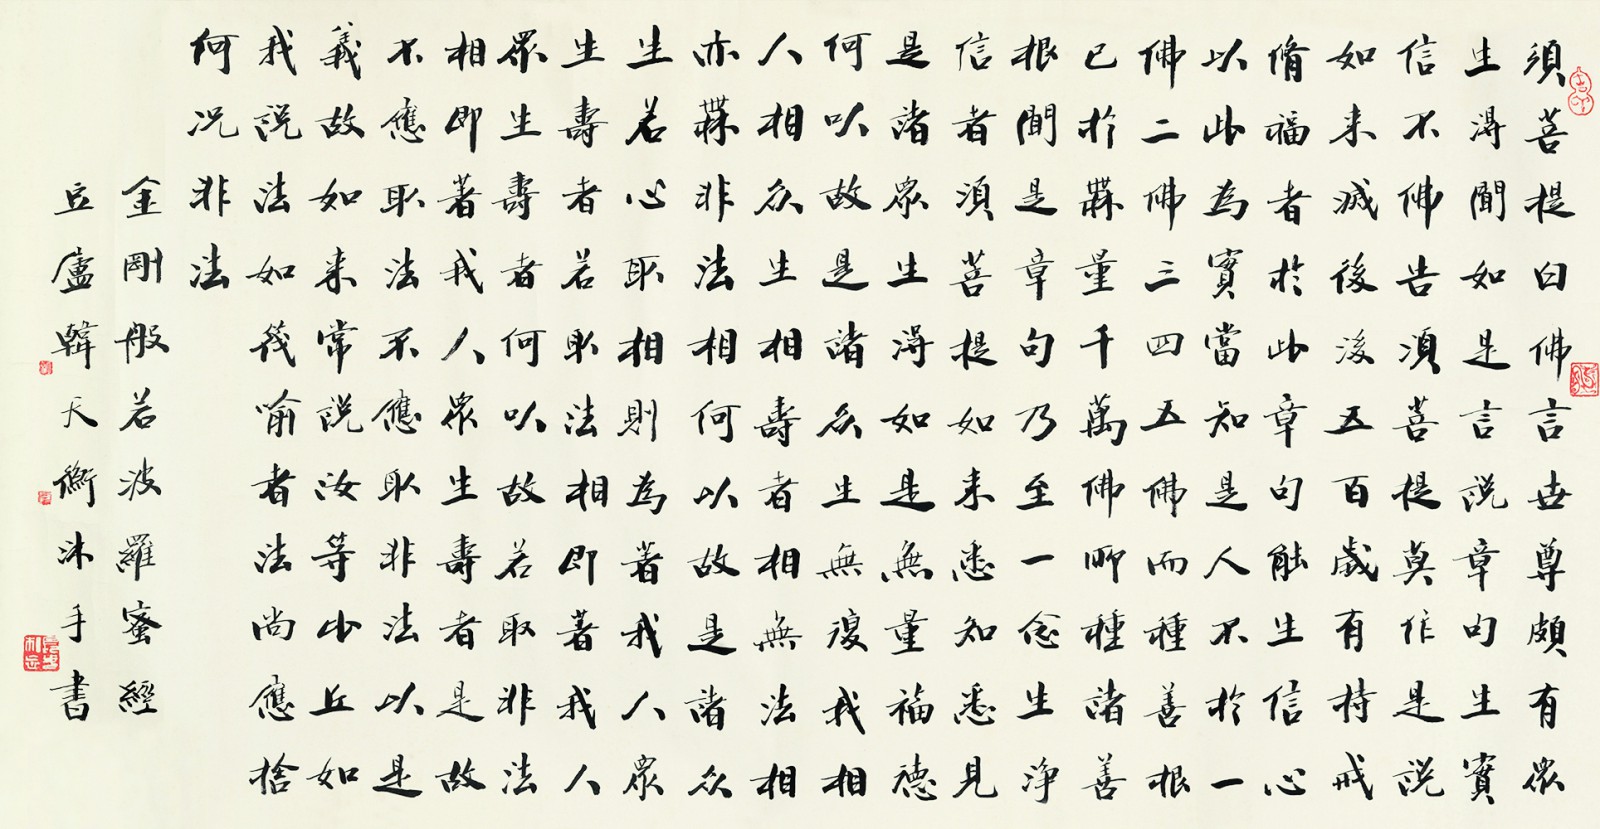 須菩提白佛言世尊頗有眾
生得聞如是言說章句生實
信不佛告須菩提莫作是說
如来滅後後五百歲有持戒
脩福者於此章句能生信心
以此為實當知是人不於一
佛二佛三四五佛而種善根
已於無量千萬佛所種諸善
根聞是章句乃至一念生淨
信者須菩提如来悉知悉見
是諸眾生得如是無量福德
何以故是諸众生無復我相
人相众生相壽者相無法相
亦無非法相何以故是諸众
生若心取相則為著我人眾
生壽者若取法相即著我人
眾生壽者何以故若取非法
相即著我人眾生壽者是故
不應取法不應取非法以是
義故如来常說汝等比丘如
我說法如筏喻者法尚應捨
何况非法
金剛般若波羅蜜經
丘廬韓天衡沐手書